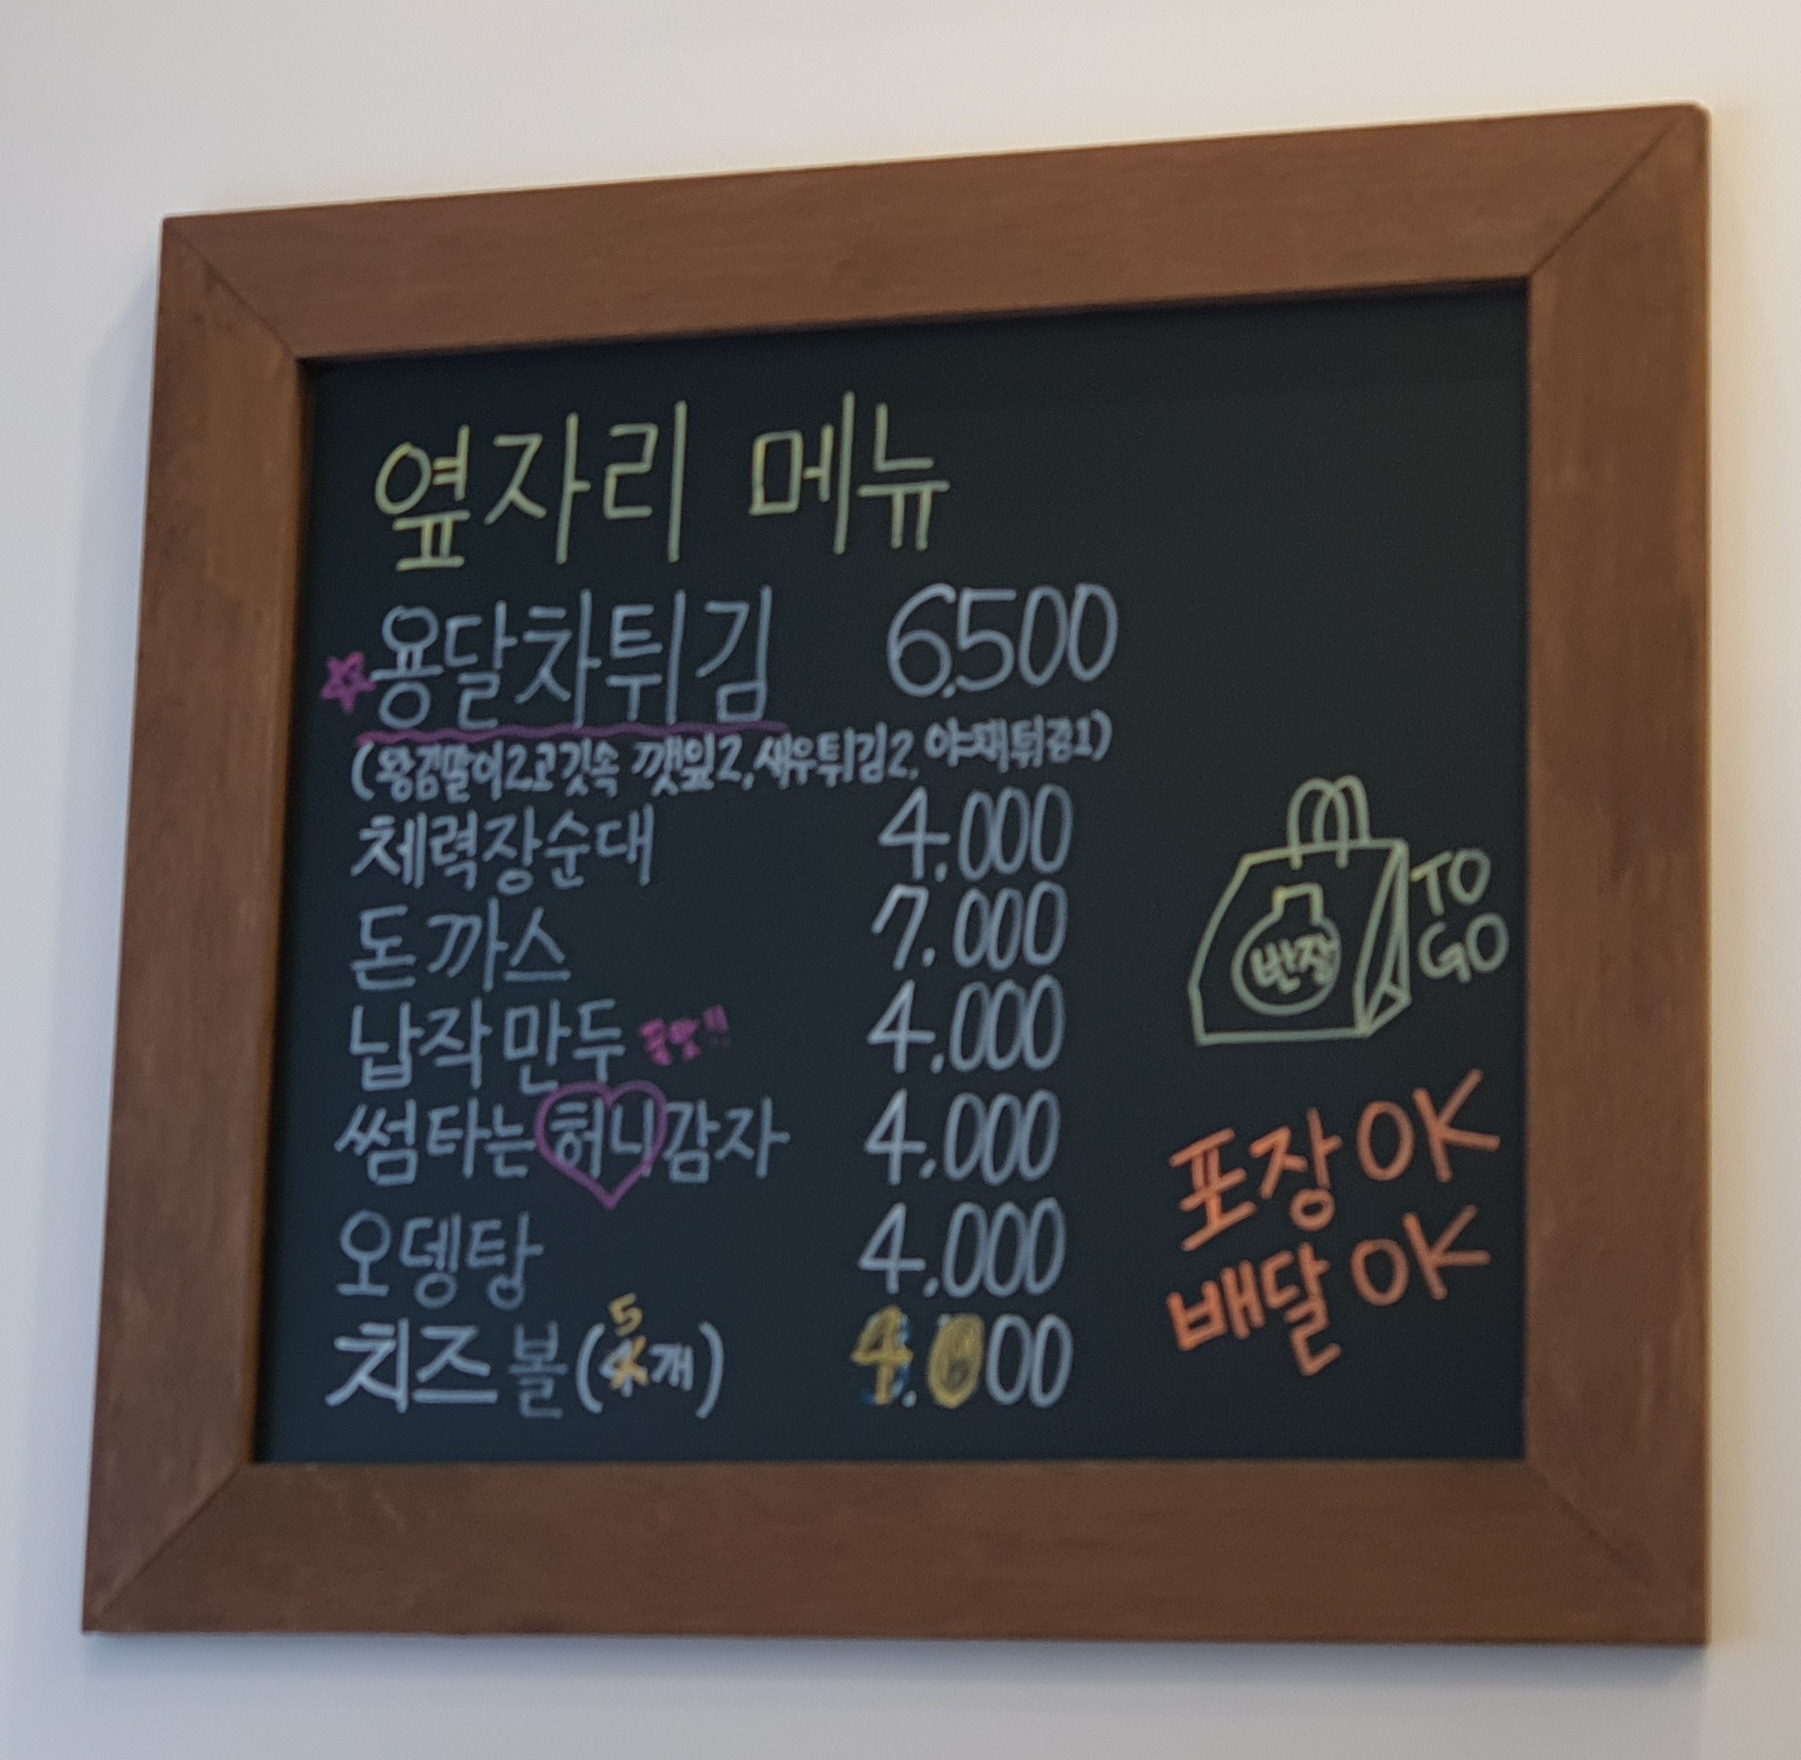 옆자리 메뉴
용달차튀김 6,500
(왕김말이2,고깃속 깻잎2,새우튀김2, 야채튀김1)
체력장순대 4,000
돈까스 7,000
납작만두 4,000
썸타는 허니 감자 4,000
오뎅탕 4,000
치즈볼(5개) 4,000
TO
GO
반장
포장 OK
배달 OK